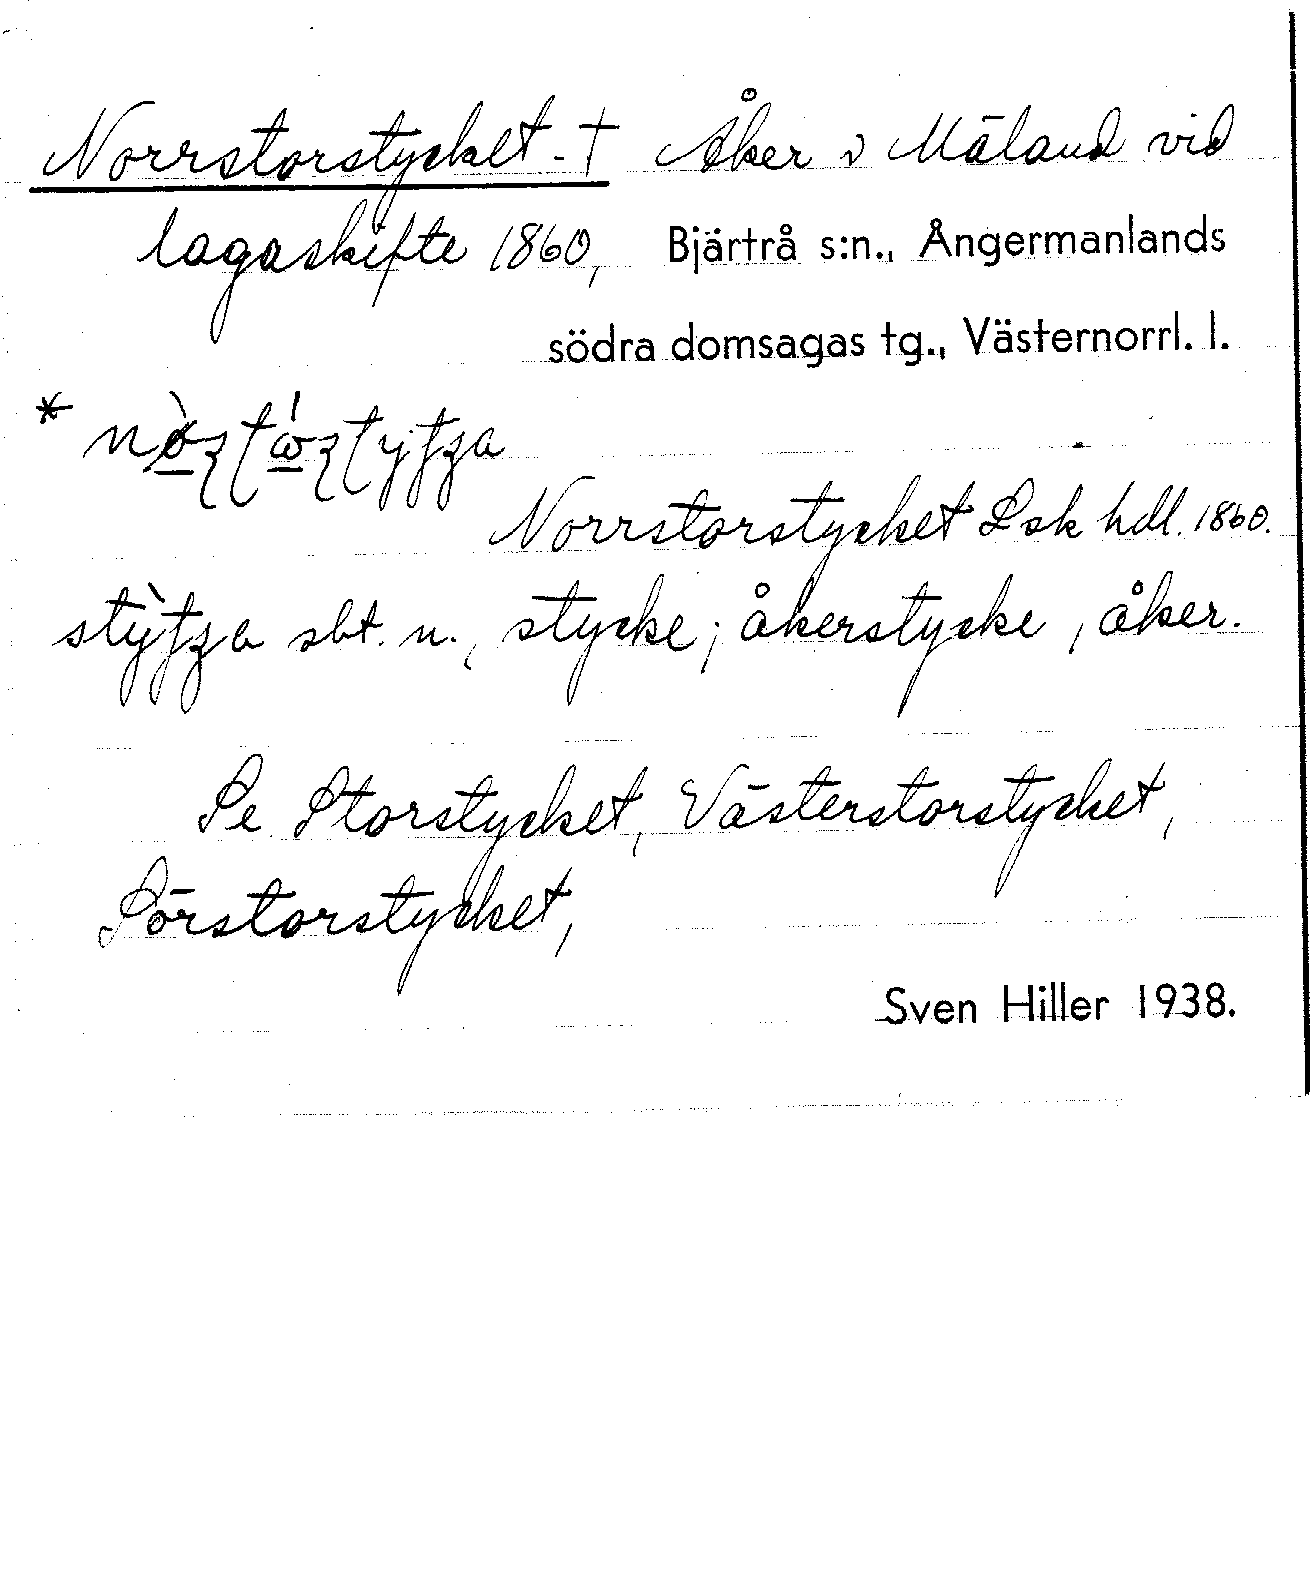 Norrstorstycket - † Åker i Mäland vid
lagaskifte 1860, Bjärtrå s:n., Ångermanlands
södra domsagas tg., Västernorrl. l.
Norrstorstycket Lsk hdl. 1860.
sbt. n., stycke; åkerstycke, åker.
Se Storstycket, Västerstorstycket,
Sörstorstycket,
Sven Hiller 1938.